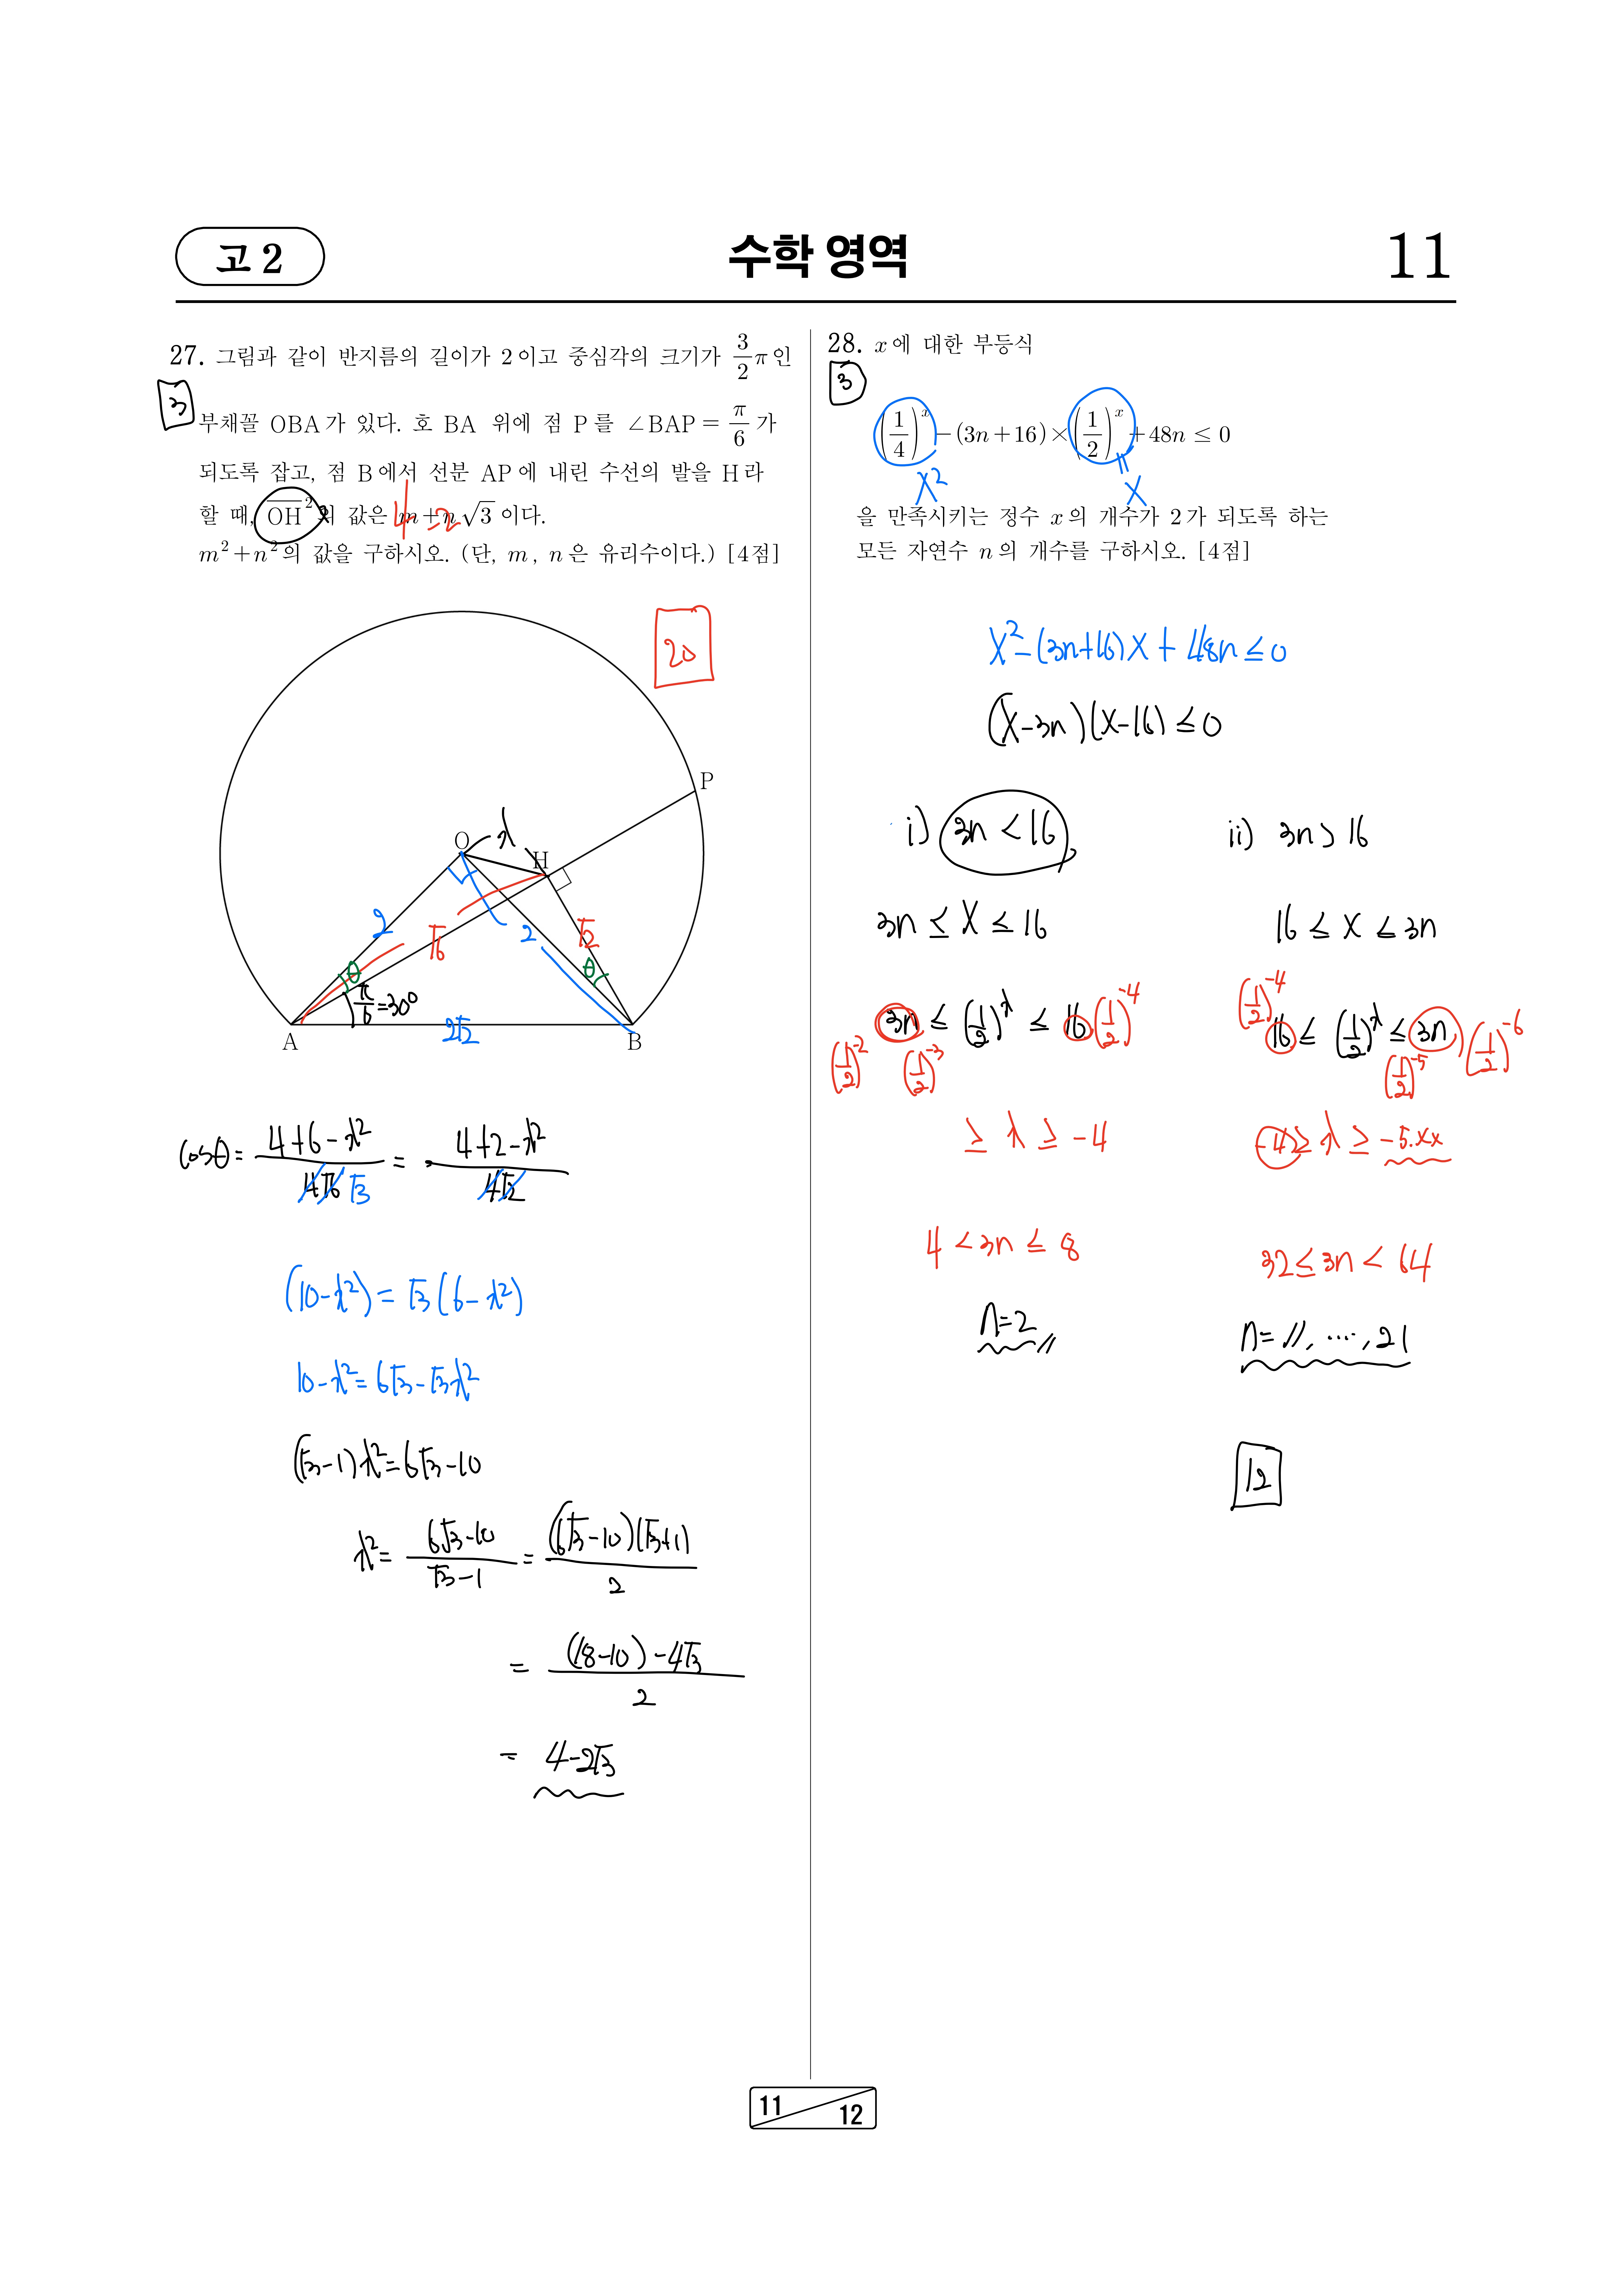 고 2
수학 영역
11
27. 그림과 같이 반지름의 길이가 2이고 중심각의 크기가 3/2 π인
3
부채꼴 OBA가 있다. 호 BA 위에 점 P를 ∠BAP = π/6 가
되도록 잡고, 점 B에서 선분 AP에 내린 수선의 발을 H라
할 때, OH² 의 값은 m+n√3 이다.
4 -2
m²+n²의 값을 구하시오. (단, m, n은 유리수이다.) [4점]
20
P
O
x
H
2
√6
2
√2
θ
θ
π/6 = 30°
A
2√2
B
cosθ = (4+6-x²)/(4√6) = (4+2-x²)/(4√2)
√3
(10-x²) = √3(6-x²)
10-x² = 6√3-√3x²
(√3-1)x² = 6√3-10
x² = (6√3-10)/(√3-1) = (6√3-10)(√3+1)/2
= ((18-10)-4√3)/2
= 4-2√3
28. x에 대한 부등식
3
(1/4)^x - (3n+16)×(1/2)^x + 48n ≤ 0
X²
X
을 만족시키는 정수 x의 개수가 2가 되도록 하는
모든 자연수 n의 개수를 구하시오. [4점]
X²-(3n+16)X+48n ≤ 0
(X-3n)(X-16) ≤ 0
i) 3n < 16,
3n ≤ X ≤ 16
3n ≤ (1/2)^x ≤ 16 (1/2)^-4
(1/2)^-2 (1/2)^-3
≥ x ≥ -4
4 < 3n ≤ 8
n=2
ii) 3n > 16
16 ≤ X ≤ 3n
(1/2)^-4
16 ≤ (1/2)^x ≤ 3n (1/2)^-6
(1/2)^-5
-4 ≥ x ≥ -5.xx
32 ≤ 3n < 64
n = 11, ⋯, 21
12
11
12